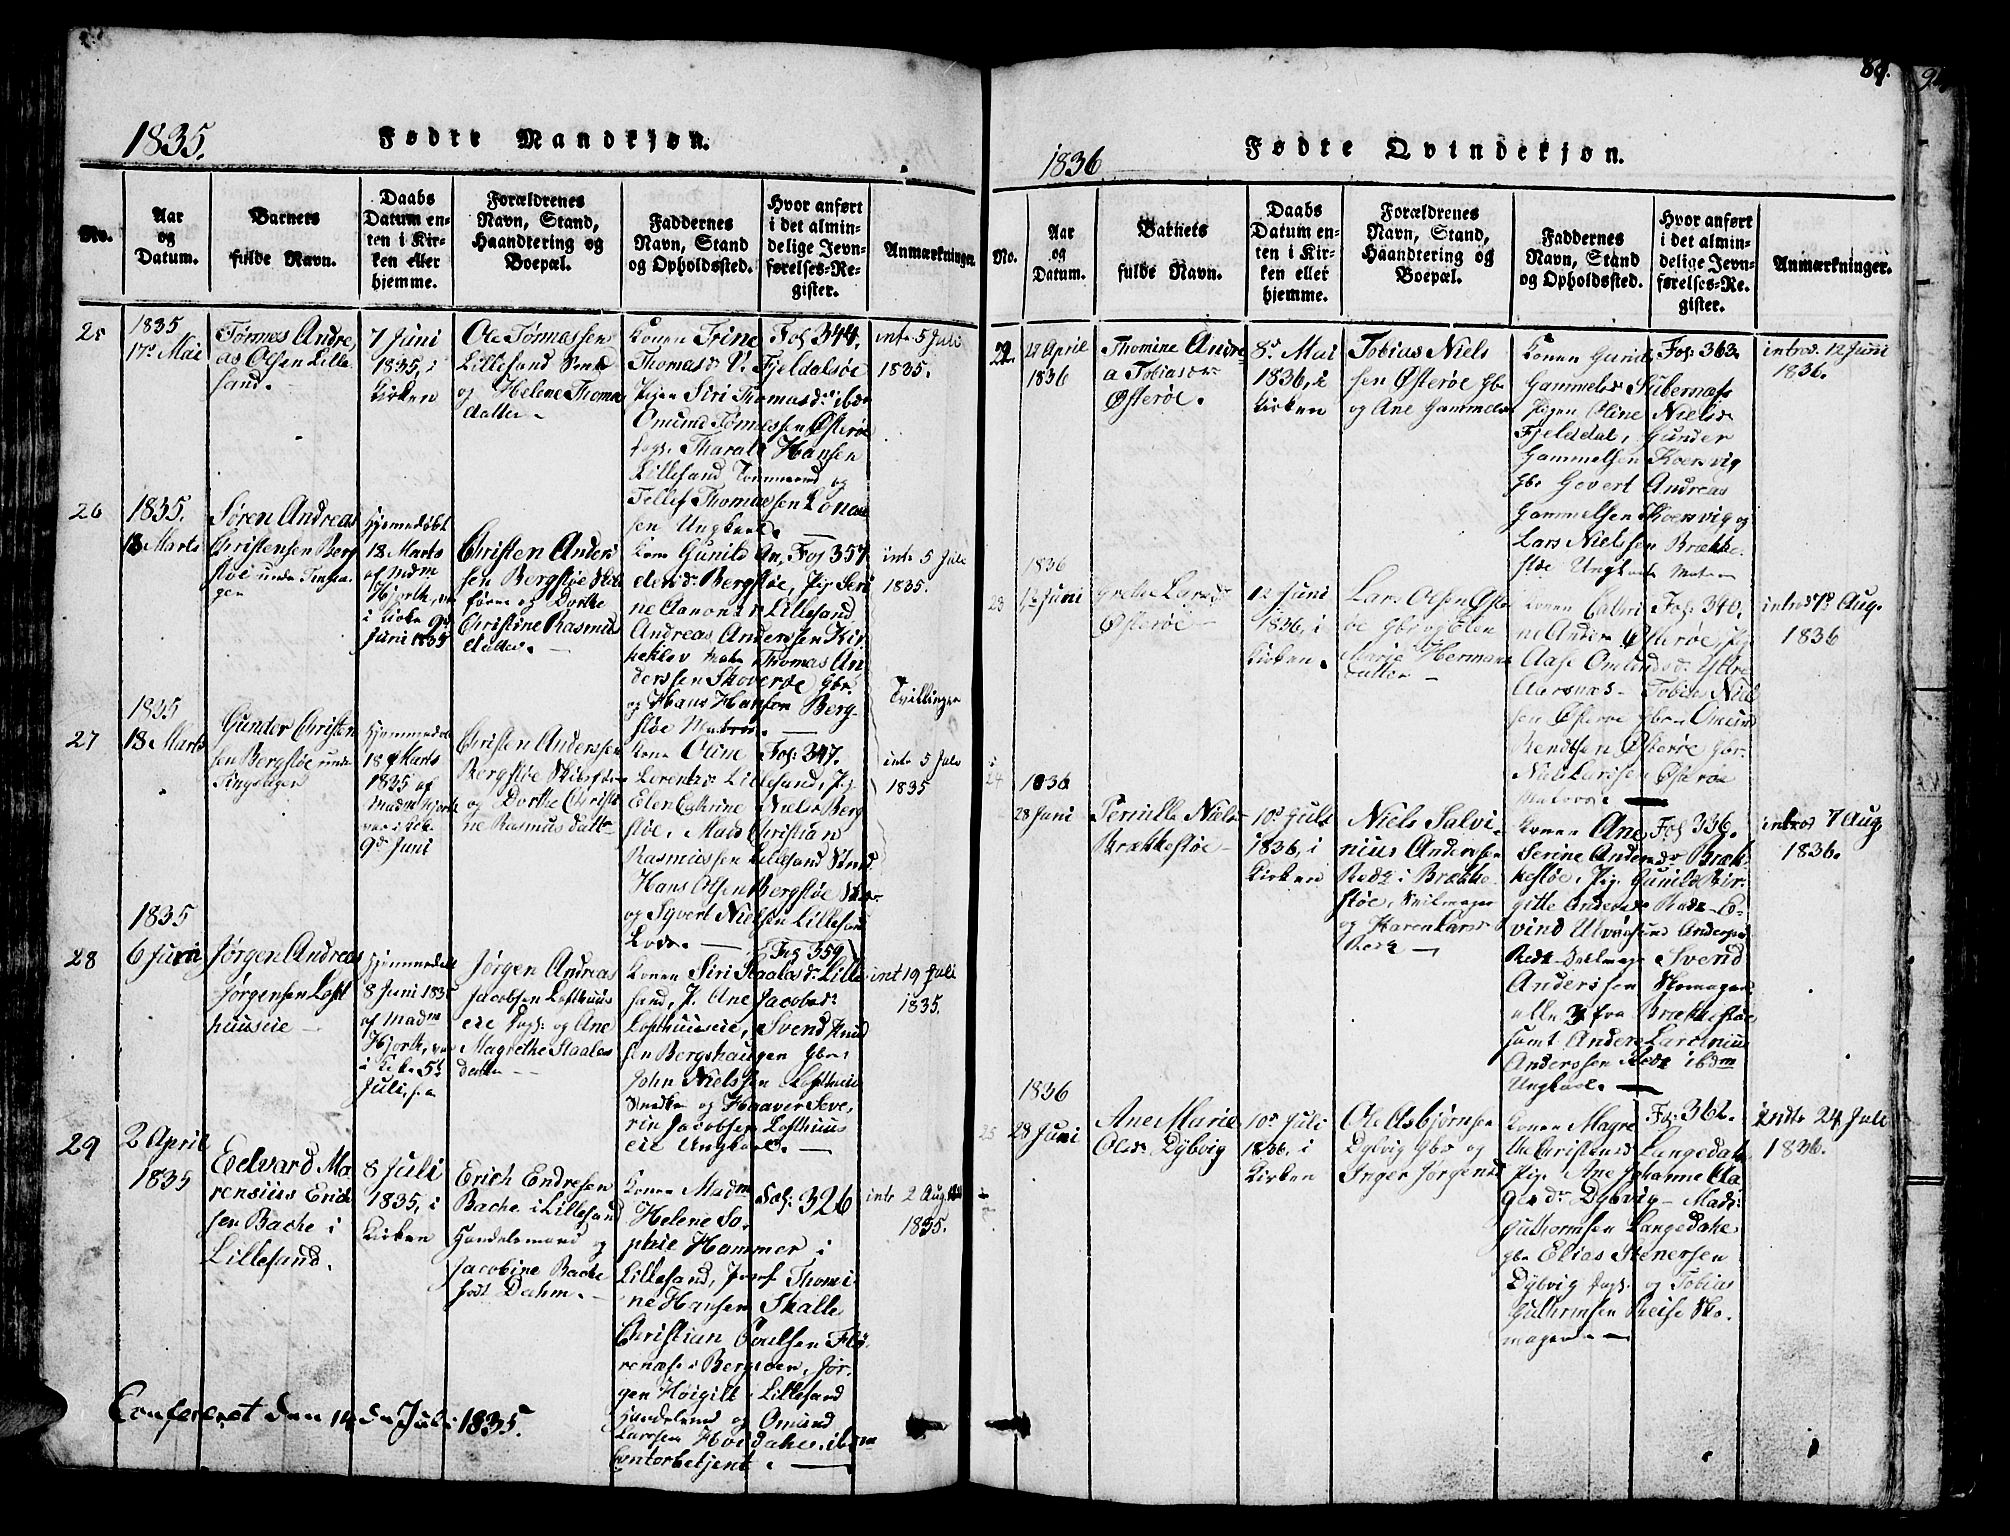 84.
1835.
Fødte Mandkjøn.
No.
Aar
og
Datum.
Barnets
fulde Navn.
Daabs
Datum en-
ten i Kir-
ken eller
hjemme.
Forældrenes
Navn, Stand,
Haandtering og
Boepæl.
Faddernes
Navn, Stand
og Opholdssted.
Hvor anført
i det almin-
delige Jevn-
førelses-Re-
gister.
Anmærkninger.
25
1835
17de Mai
Tørmes Andre
as Olsen Lille
sand.
7 Juni
1835, i
Kirken
Ole Tørnessen
Lillesand
og Helene Thomas
datter
Konen Trine
Thomasd. V. Fjeldalsøe
Pigen Siri Thomasdr. ibdm
Omund Tørnessen Østerøe
Tharald Hansen
Lillesand Tømmermd og
Tellef Thomassen
sen Ungkarl.
Fol 344.
intr 5 Juli
1835.
26
1835.
18 Marts
Søren Andreas
Christensen Berg
støe
Hjemmedøbt
18 Marts
af Mdm
Hjorth, var
i Kirken 9de
Juni 1835
Christen Anders
sen Bergstøe
og Dorthe
Christine Rasmus
datter.
Kone Gunild An
dersdr. Bergstøe, Pig Seri
ne Aanons Lillesand
Andreas Anderssen Kir
keklev Thomas An
derssen Skoverøe Gbr.
og Hans Hansen Berg-
støe Matros.
Fol 357
intr 5 Juli
1835.
Tvillinger
27
1835
18 Marts
Gunder Christen
sen Bergstøe
Hjemmedøbt
18 Marts
1835 af
Madm Hjorth
var i Kirken
9de Juni
Christen Anderssen
Bergstøe
og Dorthe Christi
ne Rasmusdatter
Kone Oline
Lorentz Lillesand, Pig
Elen Cathrine Niels Berg
støe, Mads Christian
Rasmussen Lillesand
Hans Olsen Bergstøe
og Syvert Nielsen Lillesand
Lods.
Fol: 347.
intr 5 Juli
1835
28
1835
6 Juni
Jørgen Andreas
Jørgensen Loft
huuseie
Hjemmedøbt
8 Juni 1835
af Madm
Hjorth, var
i Kirken 5te
Juli
Jørgen Andreas
Jacobsen Lofthuus
eie og Ane
Magrethe Staales
datter
Konen Siri Staalesdr. Lille
sand, P. Ane Jacobsdr.
Lofthuuseie, Svend Knud
sen Bergshaugen Gbr.
John Nielssen Lofthuus
Snedker og Haaver Seve,
rin Jacobsen Lofthuus
eie Ungkarl.
Fol 359
int 19 Juli
1835.
29
2 April
1835
Edvard Ma
rensius Erich
sen Bache i
Lillesand.
8 Juli
1835, i
Kirken
Erich Endresen
Bache i Lillesand
Handelsmand og
Jacobine Bache
født Dahm.
Konen Madm
Helene So,
phie Hammer i
Lillesand, Jomf Thomi
ne Hansen Skalle
Christian Poulsen Flø,
renæs i Bergsøen, Jør
gen Høigilt Lillesand
Handelsmd og Omund
Larssen Hovdaker ibdm
Contorbetjent.
Fol: 326
intr 2 Aug.
1835.
Confereret den 14de Juli 1835.
1836
Fødte Qvindekjøn.
No.
Aar
og
Datum.
Barnets
fulde Navn.
Daabs
Datum en-
ten i Kir-
ken eller
hjemme.
Forældrenes
Navn, Stand,
Haandtering og
Boepæl.
Faddernes
Navn, Stand
og Opholdssted.
Hvor anført
i det almin-
delige Jevn-
førelses-Re-
gister.
Anmærkninger.
22.
April
1836
Thomine Andre
a Tobiasdr
Østerøe.
8de Mai
1836, i
Kirken
Tobias Niels
sen Østerøe Gbr
og Ane Gammels
Konen Gunild
Gammelsdr Kubernæs
Pigen Oline Nielsdr
Fjelddal, Gunder
Gammelsen Koersvig
Gbr Govert Andreas
Gammelsen Koersvig og
Lars Nielssen Brække
støe Ungkarl
Fol: 363.
introd. 12 Juni
1836.
23
1836
Juni
Grethe Larsdr
Østerøe
12 Juni
1836, i
Kirken.
Lars Olsen Øster
øe Gbr og Elen
Marie Hermans
datter
Konen Cathri
ne Anders Østerøe, Pig
Aase Omundsdr. Østre
Aarsnæs Tobias Niel
sen Østerøe Gbr Omund
Rendtsen Østerøe Gbr.
Niels Larssen Østerøe
Matros
Fol: 340.
introd 7de Aug.
1836
24
1836
28 Juni
Pernille Niels
Brækkestøe
10de Juli
1836, i
Kirken
Niels Salvi
nius Anderssen
Redz i Brække
støe,
og Karen Larsdr
Redz
Konen Ane
Serine Andersdr Bræk
kestøe, Pig. Gunild Bir,
gitte Andersdr Redz
Andersen
Redz Svend
Anderssen Skomager
alle 3 fra Brækkestøe
samt Anders Laronius
Anderssen Redz ibdm
Ungkarl.
Fol 336.
introd 7 Aug
1836.
25
1836
28 Juni
Ane Marie
Olsdr Dybvig
10de Juli
1836, i
Kirken
Ole Asbjørnsen
Dybvig Gbr og
Inger Jørgensd
Konen Magre
the Christensd Langedahl
Pig. Ane Johanne Aa
gesdr Dybvig Mads
Guthormsen Langedahl
gbr Elias Stenersen
Dybvig og Tobias
Guthormsen Sko,
mager
Fol: 362.
indtr 24 Juli
1836.